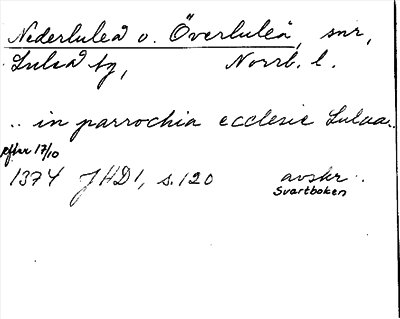 Nederluleå o. Överluleå, snr,
Luleå tg, Norrb. l.
.. in parrochia ecclesie Lulaa..
efter 17/10
1374 JHD1, s. 120 avskr.
Svartboken